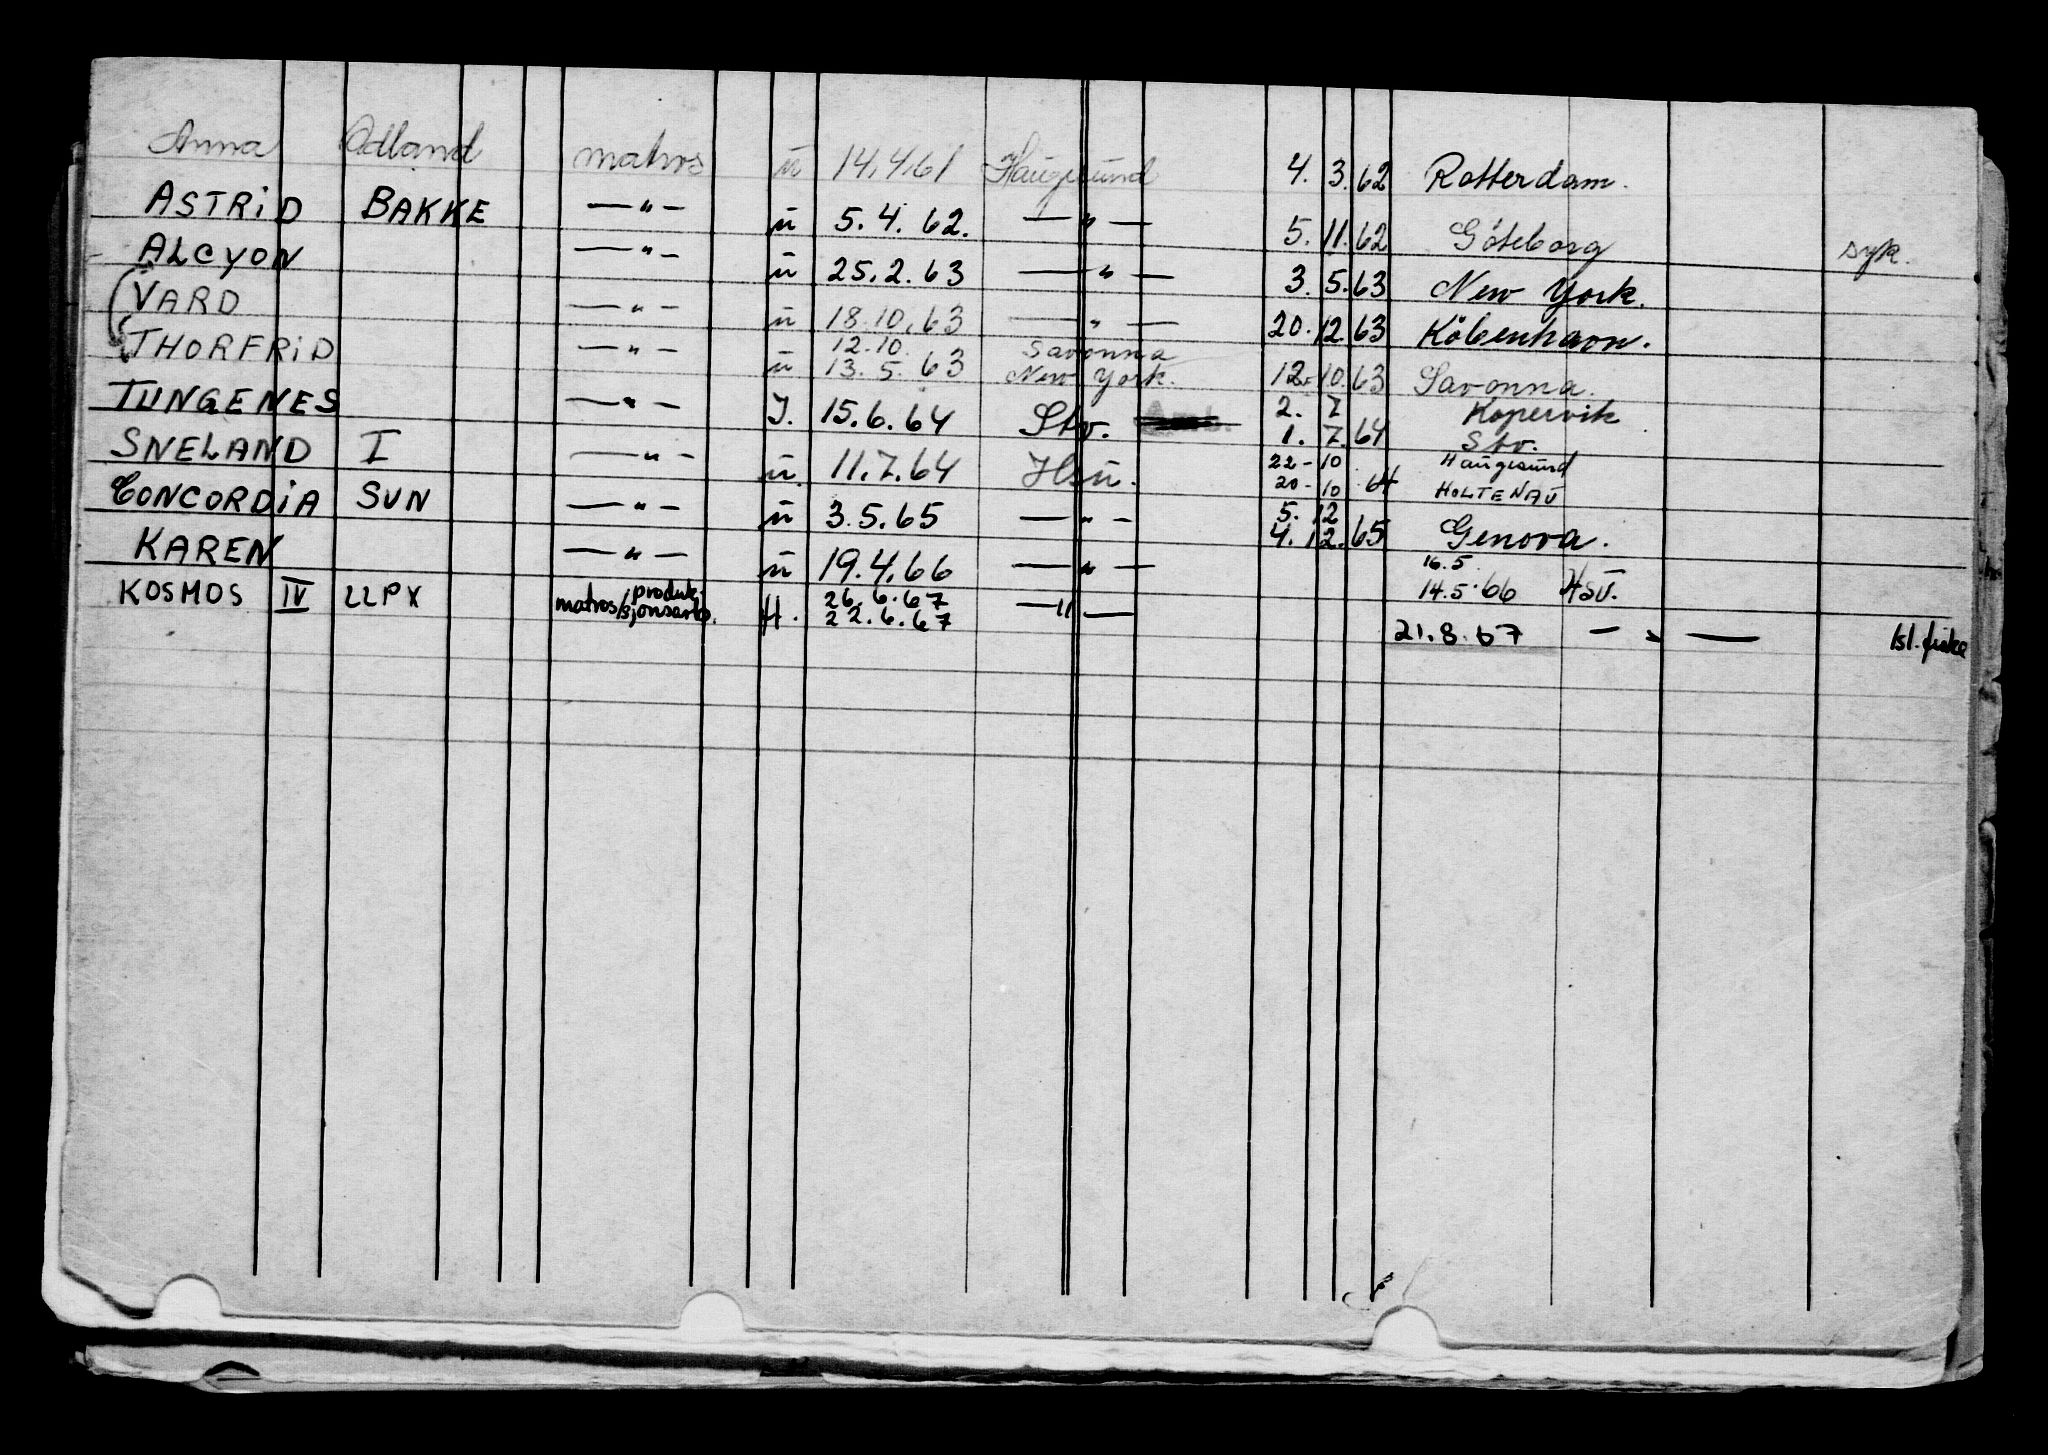 Anna Odland matros ü 14.4.61 Haugesund 4. 3. 62 Rotterdam.
ASTRID BAKKE — " — ü 5. 4. 62. — " — 5. 11. 62 Göteborg syk.
ALCYON — " — ü 25. 2. 63 — " — 3. 5. 63 New York.
VARD — " — ü 18.10.63 — " — 20. 12. 63 Köbenhavn.
12.10. Savonna
THORFRID — " — ü 13. 5. 63 New York. 12. 10. 63 Savonna.
2. 7 Kopervik
TUNGENES — " — J. 15.6.64 Stv. 1. 7. 64 Stv.
22-10 Haugesund
SNELAND I — " — ü. 11.7.64 Hsü. 20-10 64 HOLTENAU
5. 12
CONCORDIA SUN — " — ü 3.5.65 — " — 4. 12. 65 Genova.
16.5.
KAREN — " — ü 19.4.66 — " — 14.5.66 HSÜ.
produk. 26.6.67
KOSMOS IV LLPX matros/sjonsarb. H. 22.6.67 — " — 21.8.67 — " — Isl. fiske